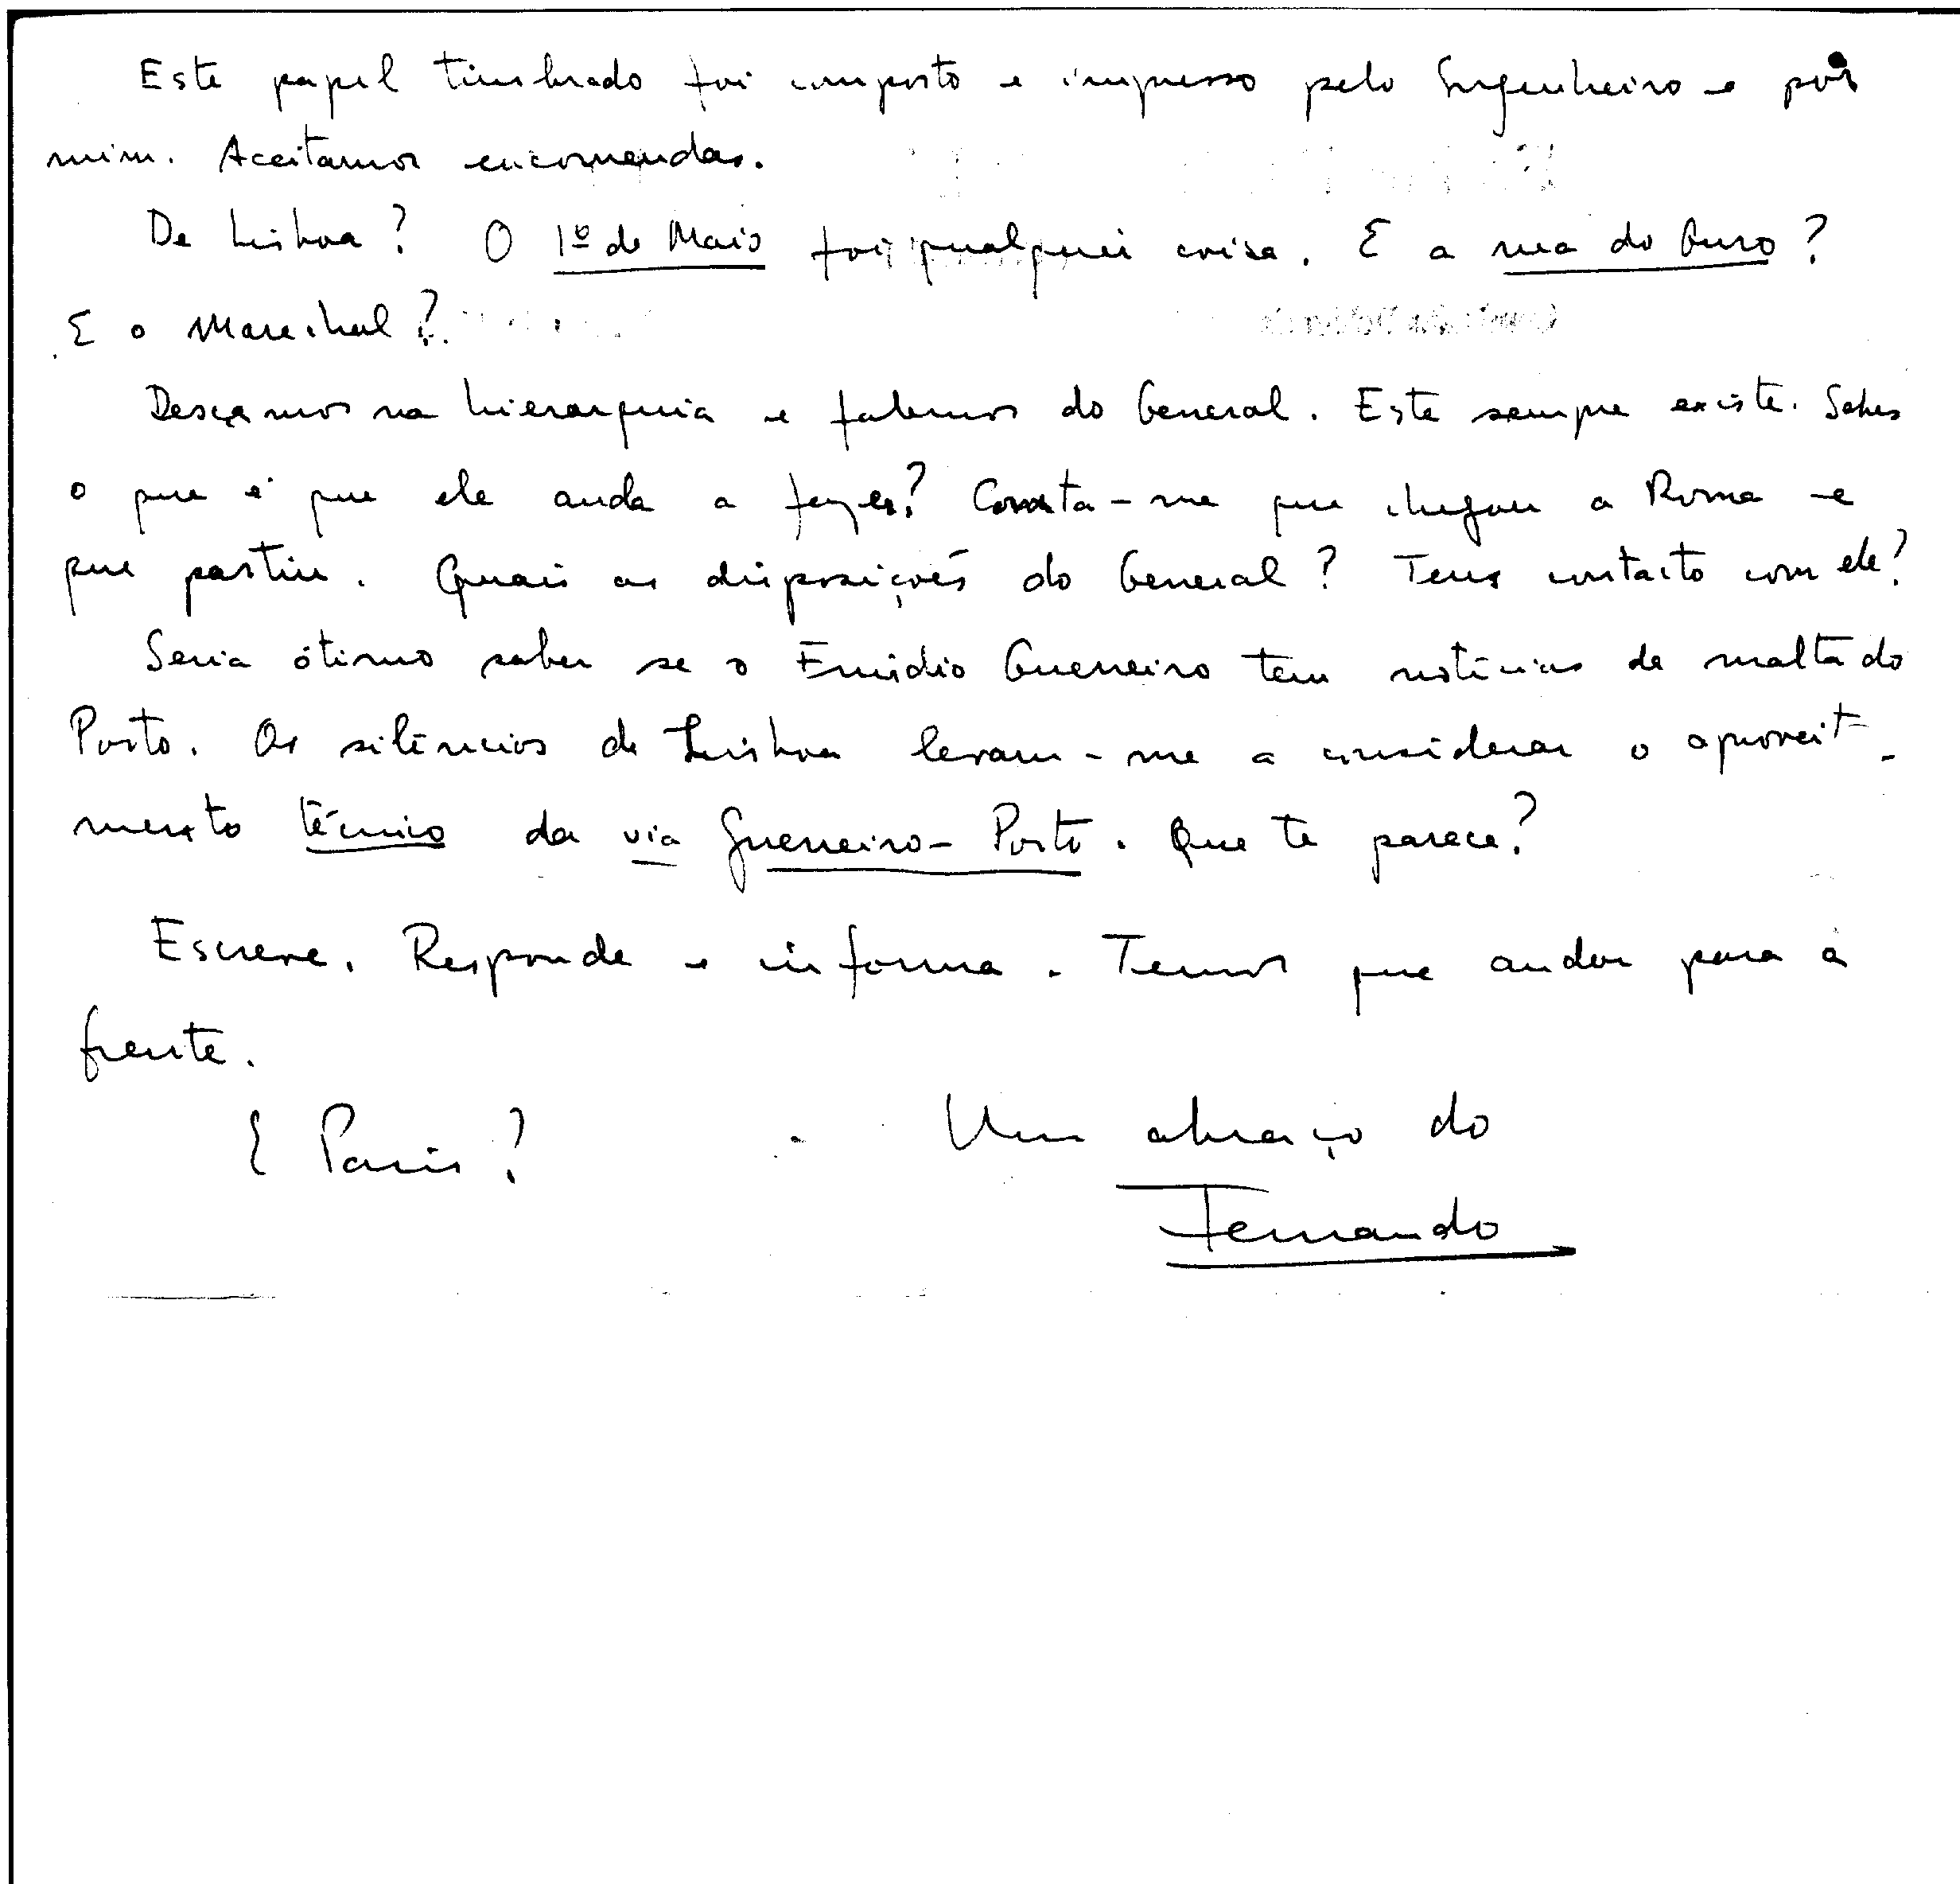 Este papel timbrado foi composto e impresso pelo Engenheiro e por
mim. Aceitamos encomendas.
De Lisboa? O 1º de Maio foi qualquer coisa. E a rua do Ouro?
E o Marechal?
Desçamos na hierarquia e falemos do General. Este sempre existe. Sabes
o que é que ele anda a fazer? Consta-me que chegou a Roma e
que partiu. Quais as disposições do General? Tens contacto com ele?
Seria ótimo saber se o Emídio Guerreiro tem notícias de malta do
Porto. Os silêncios de Lisboa levam-me a considerar o aproveit-
mento técnico da via Guerreiro-Porto. Que te parece?
Escreve. Responde e informa. Temos que andar para a
frente.
E Paris? Um abraço do
Fernando